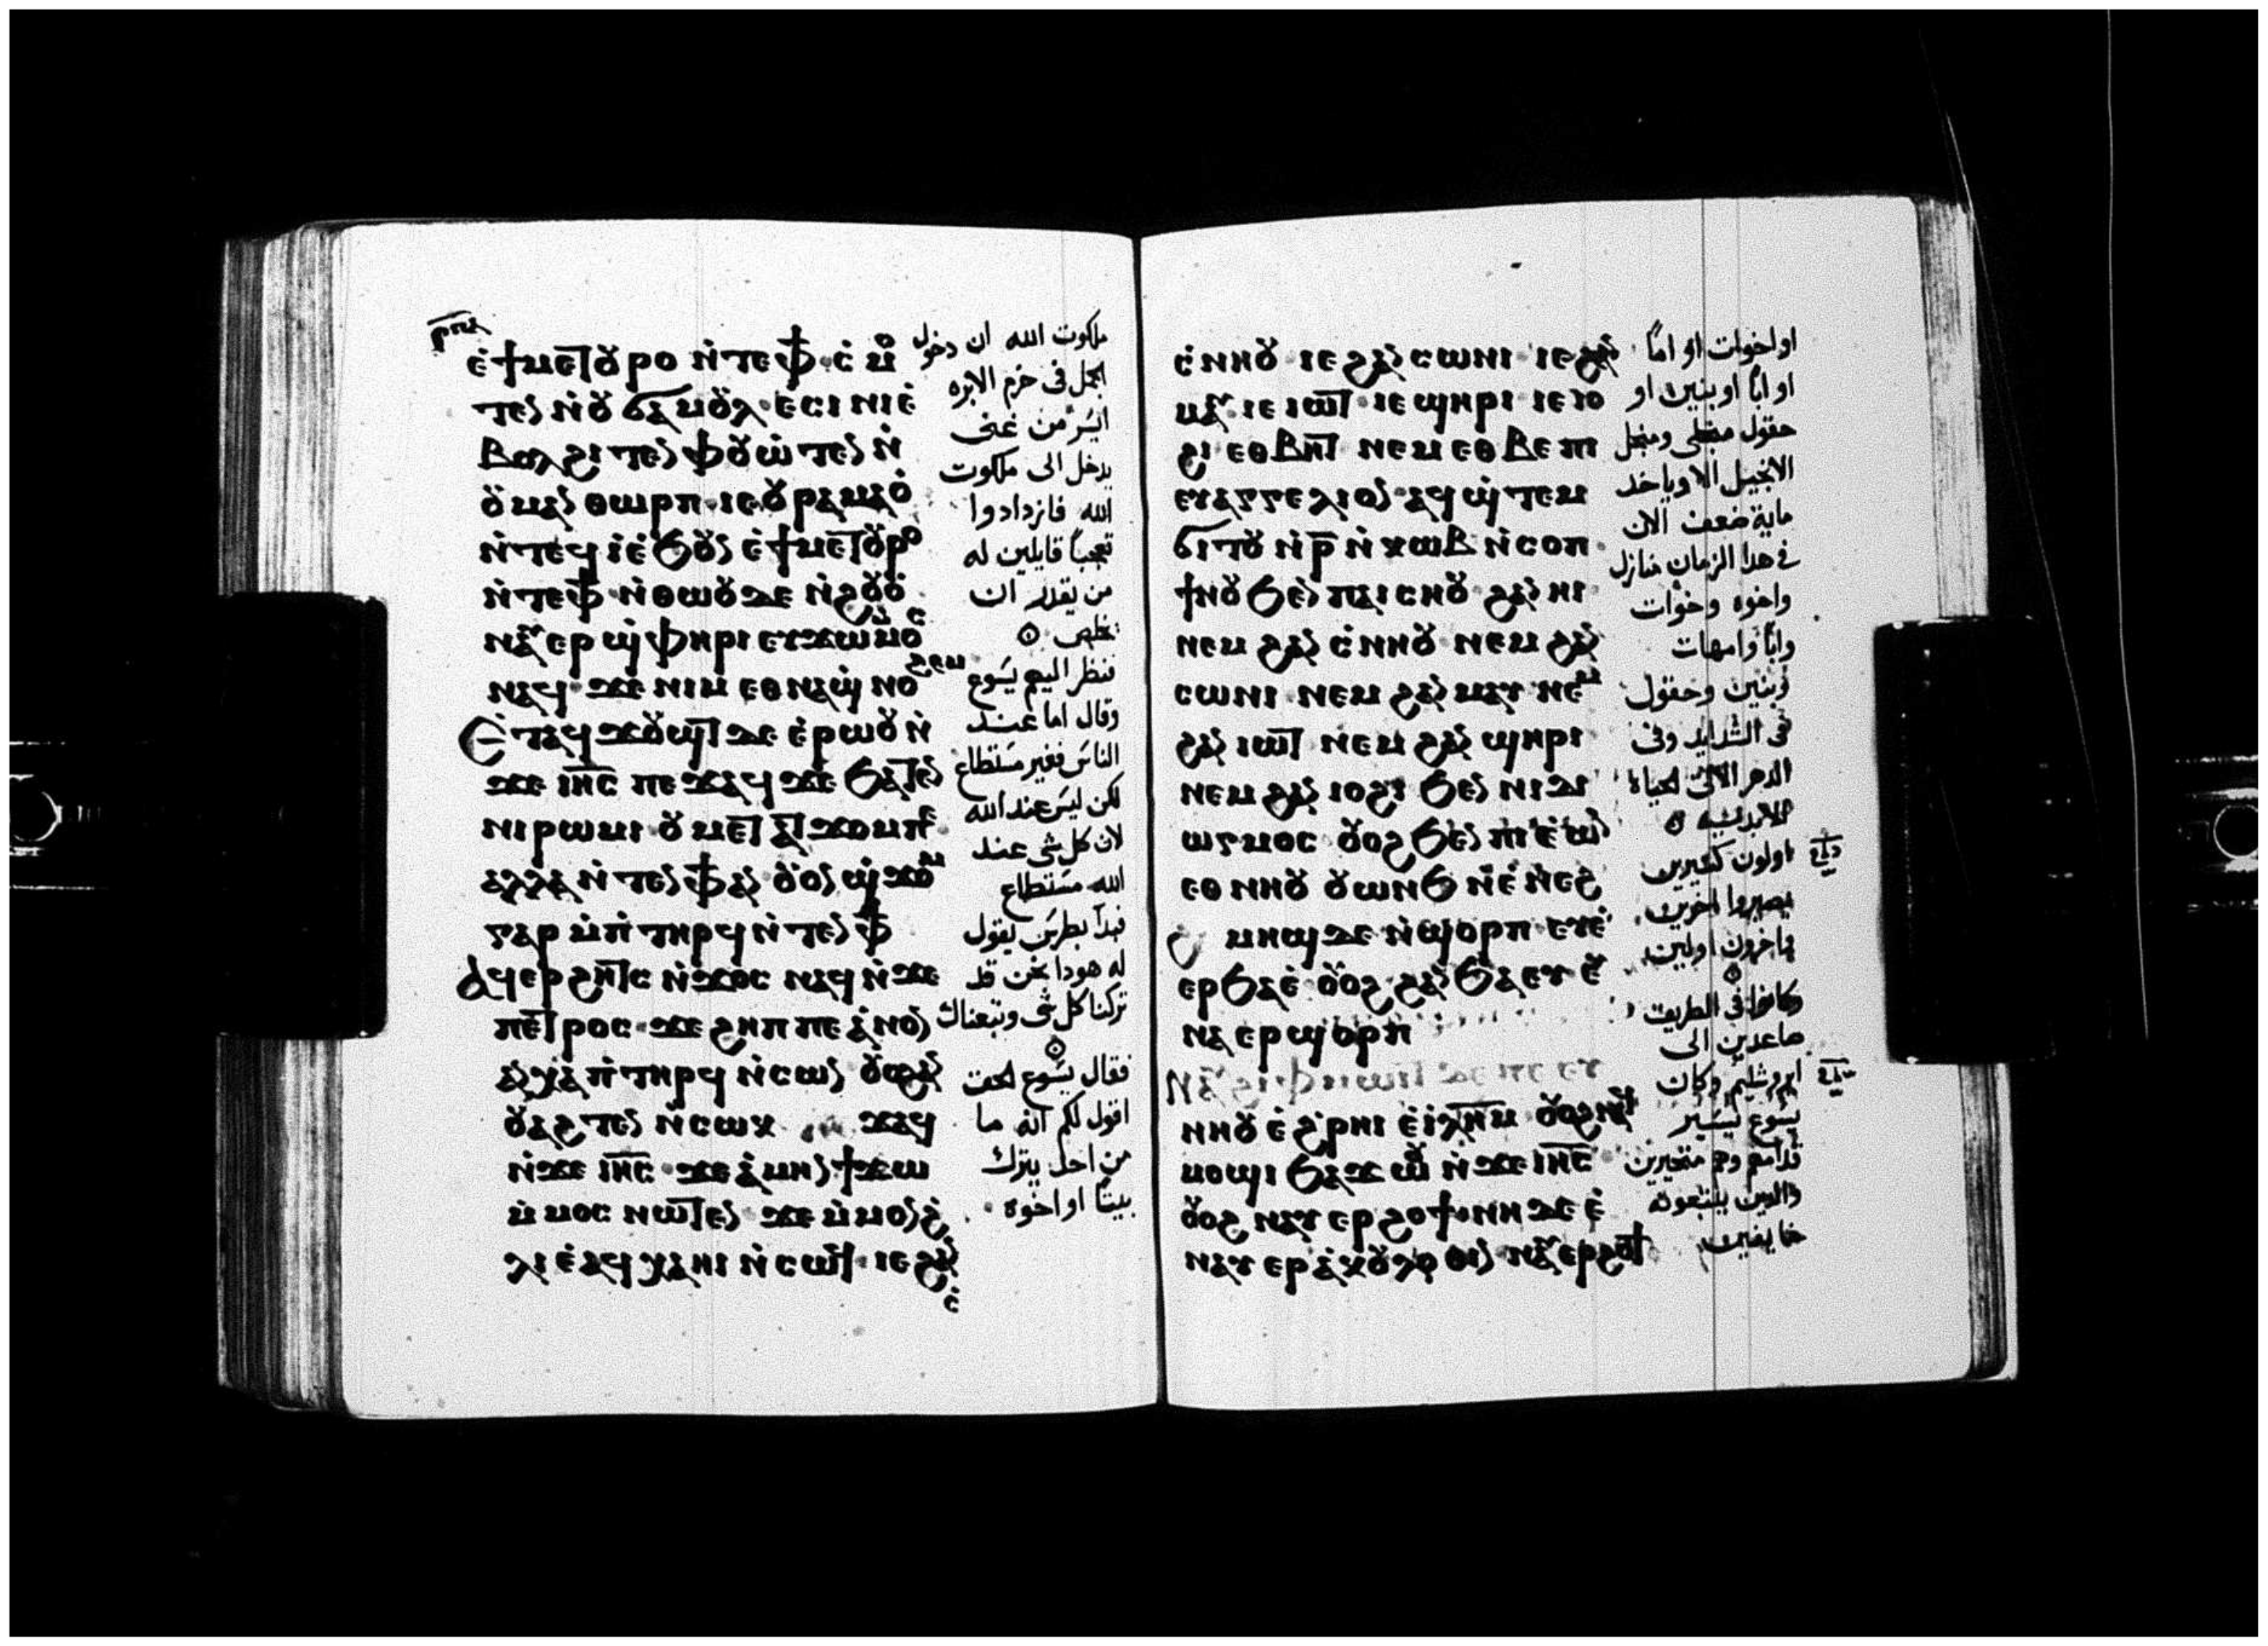 ⲣⲡⲏ
ⲉ̀ϯⲙⲉⲧⲟⲩⲣⲟ ⲛ̀ⲧⲉⲫϯ ⲥ̀ⲙⲟ
ⲧⲉⲛ ⲛ̀ⲟⲩϭⲁⲙⲟⲩⲗ ⲉⲥⲓⲛⲓ ⲉ̀
ⲃⲟⲗϩⲓⲧⲉⲛ ⲫⲟⲩⲱ̀ⲧⲉⲛ ⲛ̀
ⲟⲩⲙⲁⲛⲑⲱⲣⲡ ⲓⲉ ⲟⲩⲣⲁⲙⲁⲟ̀
ⲛ̀ⲧⲉϥⲓ̀ ⲉ̀ϧⲟⲩⲛ ⲉ̀ϯⲙⲉⲧⲟⲩⲣⲟ
ⲛ̀ⲧⲉⲫϯ ⲛ̀ⲑⲱⲟⲩ ⲇⲉ ⲛ̀ϩⲟⲩⲟ̀
ⲛⲁⲩⲉⲣϣ̀ⲫⲏⲣⲓ ⲉⲩϫⲱ ⲙ̀ⲙⲟⲥ
ⲛⲁϥ ϫⲉ ⲛⲓⲙ ⲉⲑⲛⲁϣ̀ ⲛⲟϩⲉⲙ
Ⲉ̀ⲧⲁϥϫⲟⲩϣⲧ ⲇⲉ ⲉ̀ⲣⲱⲟⲩ ⲛ̀
ϫⲉ ⲓⲏⲥ ⲡⲉϫⲁϥ ϫⲉ ϧⲁⲧⲉⲛ
ⲛⲓⲣⲱⲙⲓ ⲟⲩⲙⲉⲧⲁⲧϫⲟⲙ ⲡⲉ
ⲁⲗⲗⲁ ⲛ̀ⲧⲉⲛ ⲫϯ ⲁⲛ ⲟⲩⲟⲛ ϣ̀ϫⲟⲙ
ⲅⲁⲣ ⲙ̀ⲡ̀ⲧⲏⲣϥ ⲛ̀ⲧⲉⲛ ⲫϯ
Ⲁϥⲉⲣϩⲏⲧⲥ ⲛ̀ϫⲟⲥ ⲛⲁϥ ⲛ̀ϫⲉ
ⲡⲉⲧⲣⲟⲥ ϫⲉ ϩⲏⲡⲡⲉ ⲁ̀ⲛⲟⲛ
ⲁⲛⲭⲁ ⲡ̀ⲧⲏⲣϥ ⲛ̀ⲥⲱⲛ ⲟⲩⲟϩ ⲁⲛ
ⲟⲩⲁϩⲧⲉⲛ ⲛ̀ⲥⲱⲕ ϫⲁϥ
ⲛ̀ϫⲉ ⲓⲏⲥ ϫⲉ ⲁ̀ⲙⲏⲛ ϯϫⲱ
ⲙ̀ⲙⲟⲥ ⲛⲱⲧⲉⲛ ϫⲉ ⲙ̀ⲙⲟⲛ ϩ̀
ⲗⲓ ⲉ̀ⲁϥⲭⲁ ⲏⲓ ⲛ̀ⲥⲱϥ ⲓⲉ ϩⲁⲛ
ⲥ̀
ملكوت الله ان دخول
الجمل فى خرم الابره
ايسر من غنى
يدخل الى ملكوت
الله فازدادوا
تعجباً قايلين له
من يقدر ان
يخلص
فنظر اليهم يسوع
وقال اما عند
الناس فغير مستطاع
لكن ليس عند الله
لان كل شى عند
الله مستطاع
فبدا بطرس يقول
له هودا نحن قد
تركنا كل شى وتبعناك
فقال يسوع الحق
اقول لكم انه ما
من احد يترك
بيتاً او اخوه
ⲥ̀ⲛⲏⲟⲩ ⲓⲉ ϩⲁⲛⲥⲱⲛⲓ ⲓⲉ ϩⲁⲛ
ⲙⲁⲩ ⲓⲉ ⲓⲱⲧ ⲓⲉ ϣⲏⲣⲓ ⲓⲉ ⲓⲟ
ϩⲓ ⲉⲑⲃⲏⲧ ⲛⲉⲙ ⲉⲑⲃⲉ ⲡⲓ
ⲉⲩⲁⲅⲅⲉⲗⲓⲟⲛ ⲁϥϣ̀ⲧⲉⲙ
ϭⲓⲧⲟⲩ ⲛ̀ⲣ̅ ⲛ̀ⲕⲱⲃ ⲛ̀ⲥⲟⲡ
ϯⲛⲟⲩ ϧⲉⲛ ⲡⲁⲓⲥⲏⲟⲩ ϩⲁⲛⲏⲓ
ⲛⲉⲙ ϩⲁⲛⲥ̀ⲛⲏⲟⲩ ⲛⲉⲙ ϩⲁⲛ
ⲥⲱⲛⲓ ⲛⲉⲙ ϩⲁⲛⲙⲁⲩ ⲛⲉⲙ
ϩⲁⲛⲓⲱⲧ ⲛⲉⲙ ϩⲁⲛϣⲏⲣⲓ
ⲛⲉⲙ ϩⲁⲛⲓⲟϩⲓ ϧⲉⲛ ⲛⲓⲇⲓ
ⲱⲅⲙⲟⲥ ⲟⲩⲟϩ ϧⲉⲛ ⲡⲓⲉ̀ⲱⲛ
ⲉⲑⲛⲏⲟⲩ ⲟⲩⲱⲛϧ ⲛ̀ⲉ̀ⲛⲉϩ
ⲙⲏϣ ⲇⲉ ⲛ̀ϣⲟⲣⲡ ⲉⲩⲉ̀
ⲉⲣϧⲁⲉ̀ ⲟⲩⲟϩ ϩⲁⲛϧⲁⲉⲩ ⲉⲩ
ⲛⲁⲉⲣϣⲟⲣⲡ
ⲛⲏⲟⲩ ⲉ̀ϩ̀ⲣⲏⲓ ⲉ̀ⲓ̀ⲗⲏⲙ ⲟⲩⲟϩ ⲛⲁϥ
ⲙⲟϣⲓ ϧⲁϫⲱⲟⲩ ⲛ̀ϫⲉ ⲓⲏⲥ
ⲟⲩⲟϩ ⲛⲁⲩⲉⲣϩⲟϯ ⲛⲏ ⲇⲉ ⲉ̀
ⲛⲁⲩⲉⲣⲁ̀ⲕⲟⲩⲗⲟⲑⲓⲛ ⲛⲁⲩⲉⲣϩⲟϯ
او اخوات او اماً
او اباً او بنين او
حقول من اجلى ومن اجل
الانجيل الا وياخد
ماية ضعف الان
فى هدا الزمان منازل
واخوه وخوات
واباً وامهات
وبنين وحقول
فى الشدايد وفى
الدهر الاتى الحياه
الابديه
اولون كثيرين
يصيروا اخرين
واخرون اولين
وكانوا فى الطريق
صاعدين الى
ايروشليم وكان
يسوع يسير
قدامهم وهم متحيرين
والدين يتبعونه
خايفين